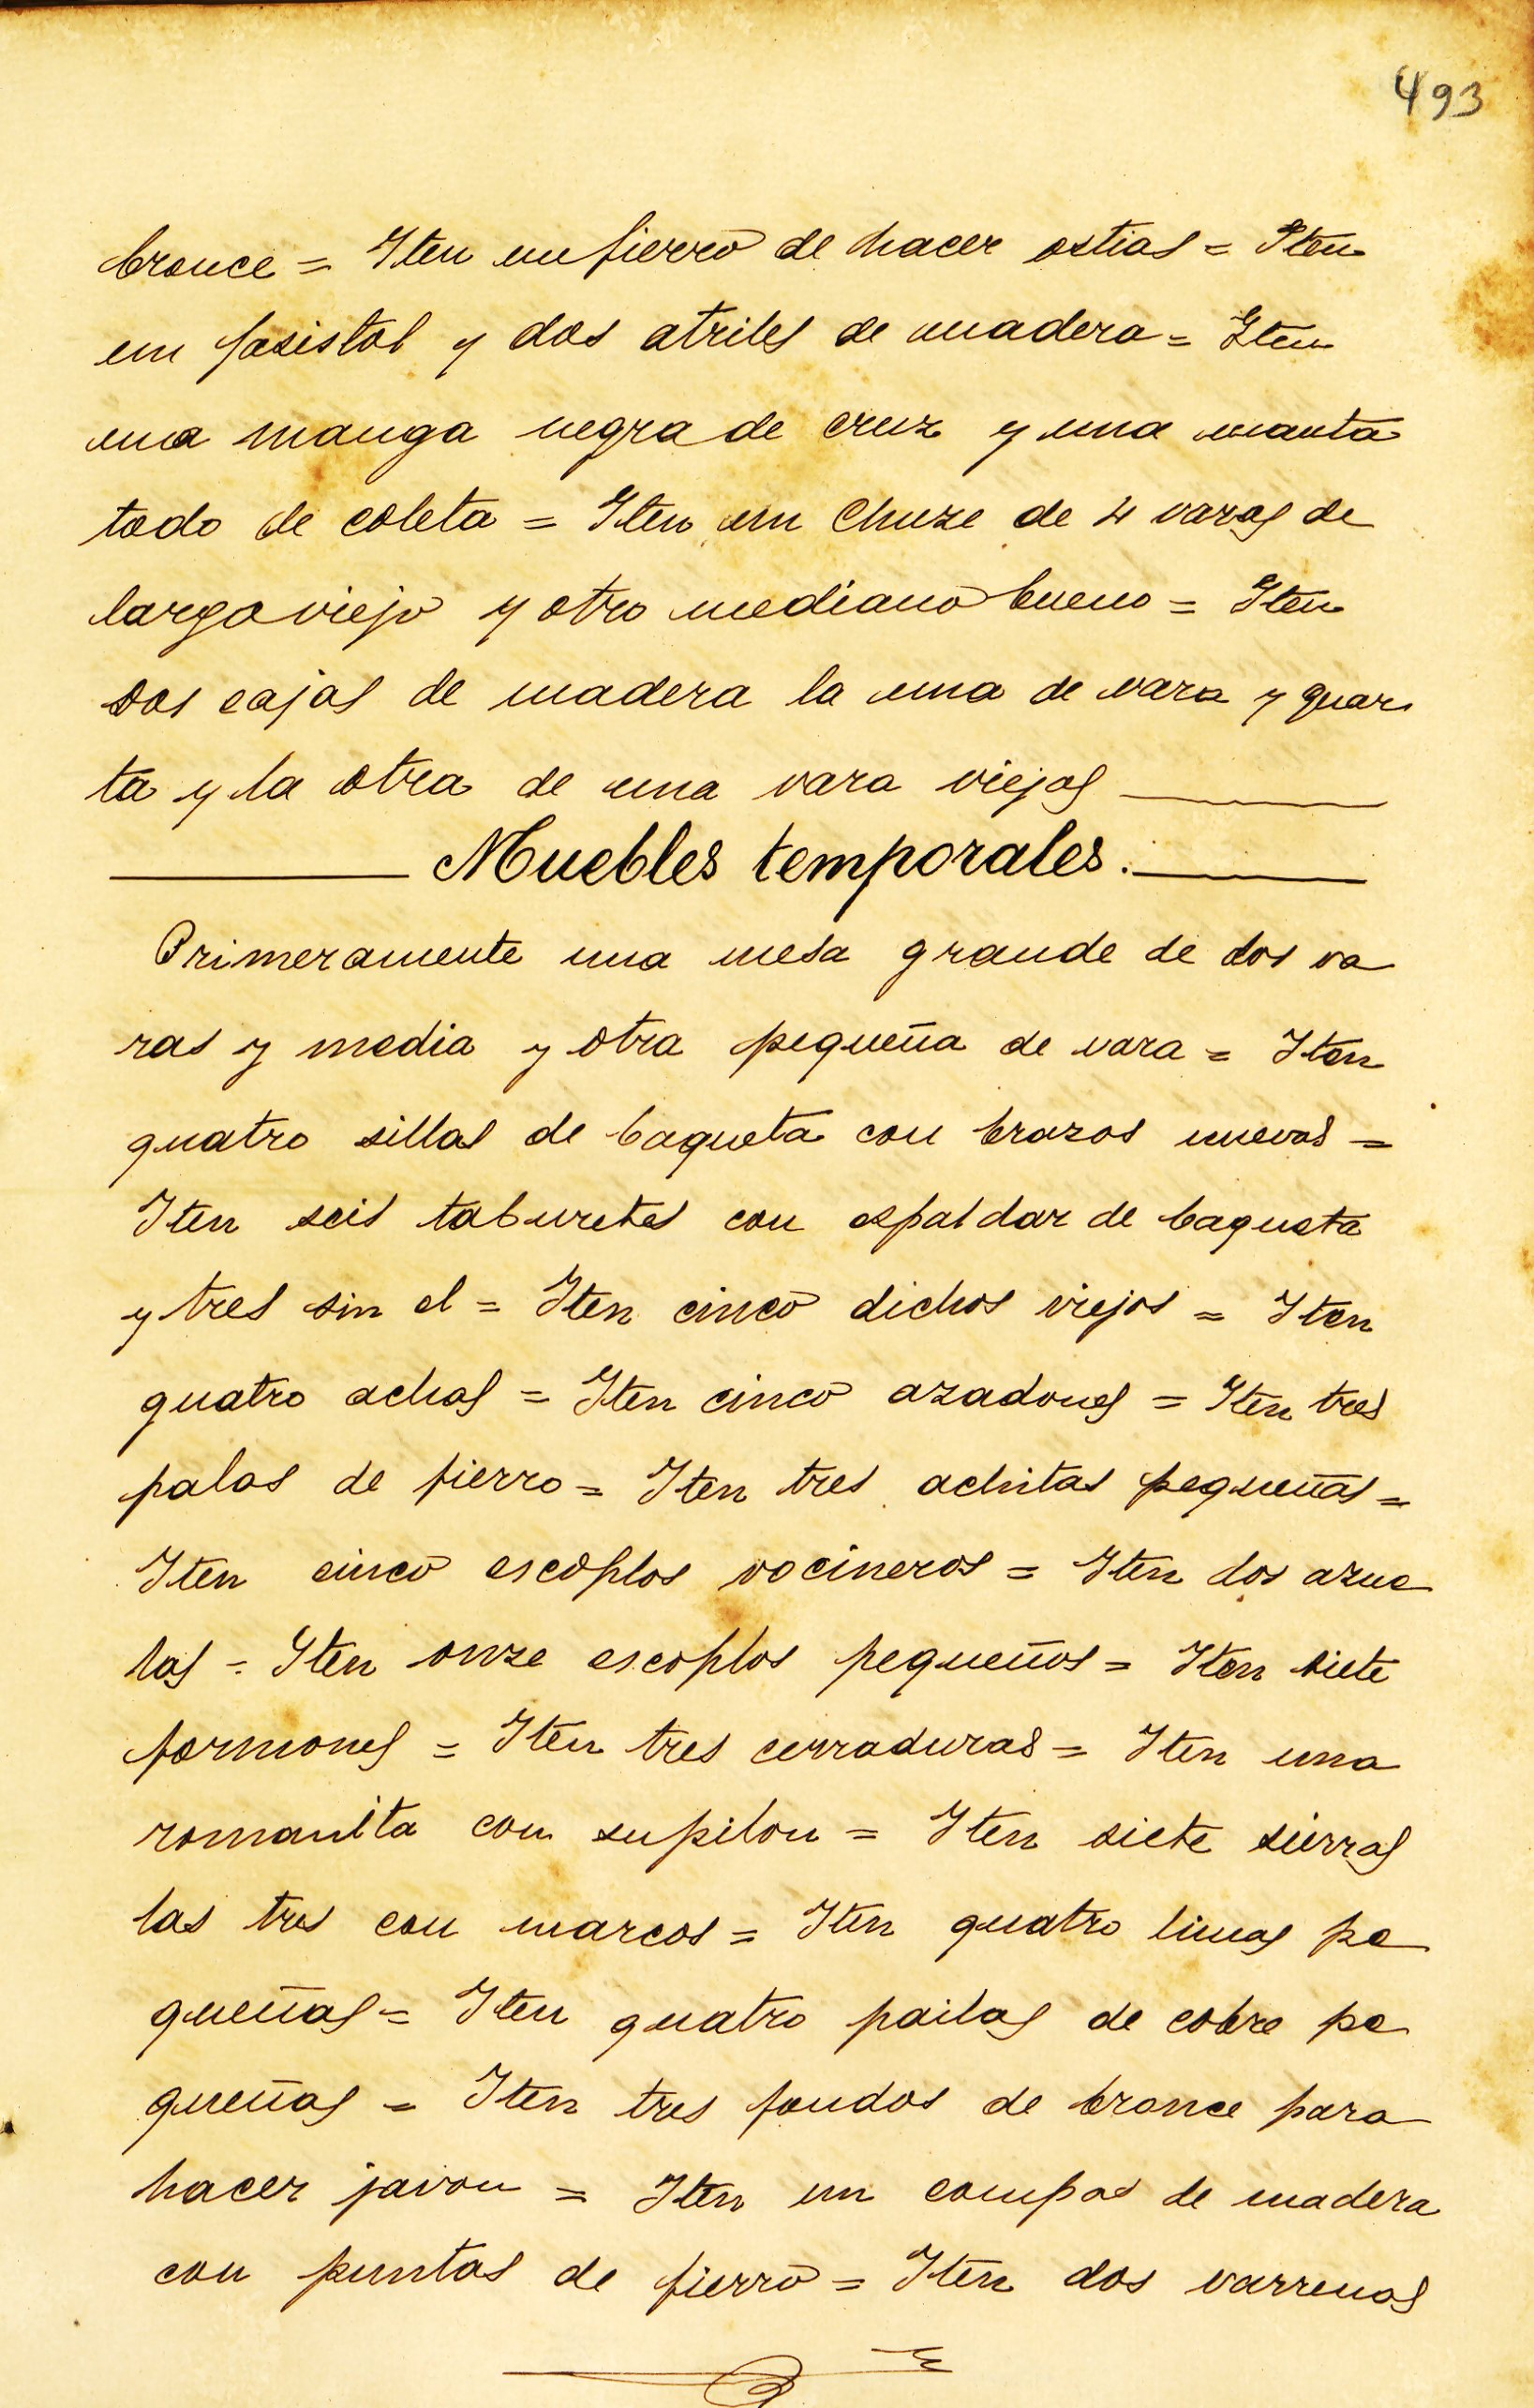 493
bronce = Iten un fierro de hacer ostias = Iten
un fasistol y dos atriles de madera = Iten
una manga negra de cruz y una manta
todo de coleta = Iten un Chuze de 4 varas de
largo viejo y otro mediano bueno = Iten
dos cajas de madera la una de vara y quar
ta y la otra de una vara viejas
Muebles temporales.
Primeramente una mesa grande de dos va
ras y media y otra pequeña de vara = Iten
quatro sillas de baqueta con brazos nuevas =
Iten seis taburetes con espaldar de baqueta
y tres sin el = Iten cinco dichos viejos = Iten
quatro achas = Iten cinco azadones = Iten tres
palas de fierro = Iten tres achitas pequeñas =
Iten cinco escoplos vocineros = Iten dos azue
las = Iten onze escoplos pequeños = Iten siete
formones = Iten tres cerraduras = Iten una
romanita con su pilon = Iten siete sierras
las tres con marcos = Iten quatro limas pe
queñas = Iten quatro pailas de cobre pe
queñas = Iten tres fondos de bronce para
hacer javon = Iten un compas de madera
con puntas de fierro = Iten dos varrenas